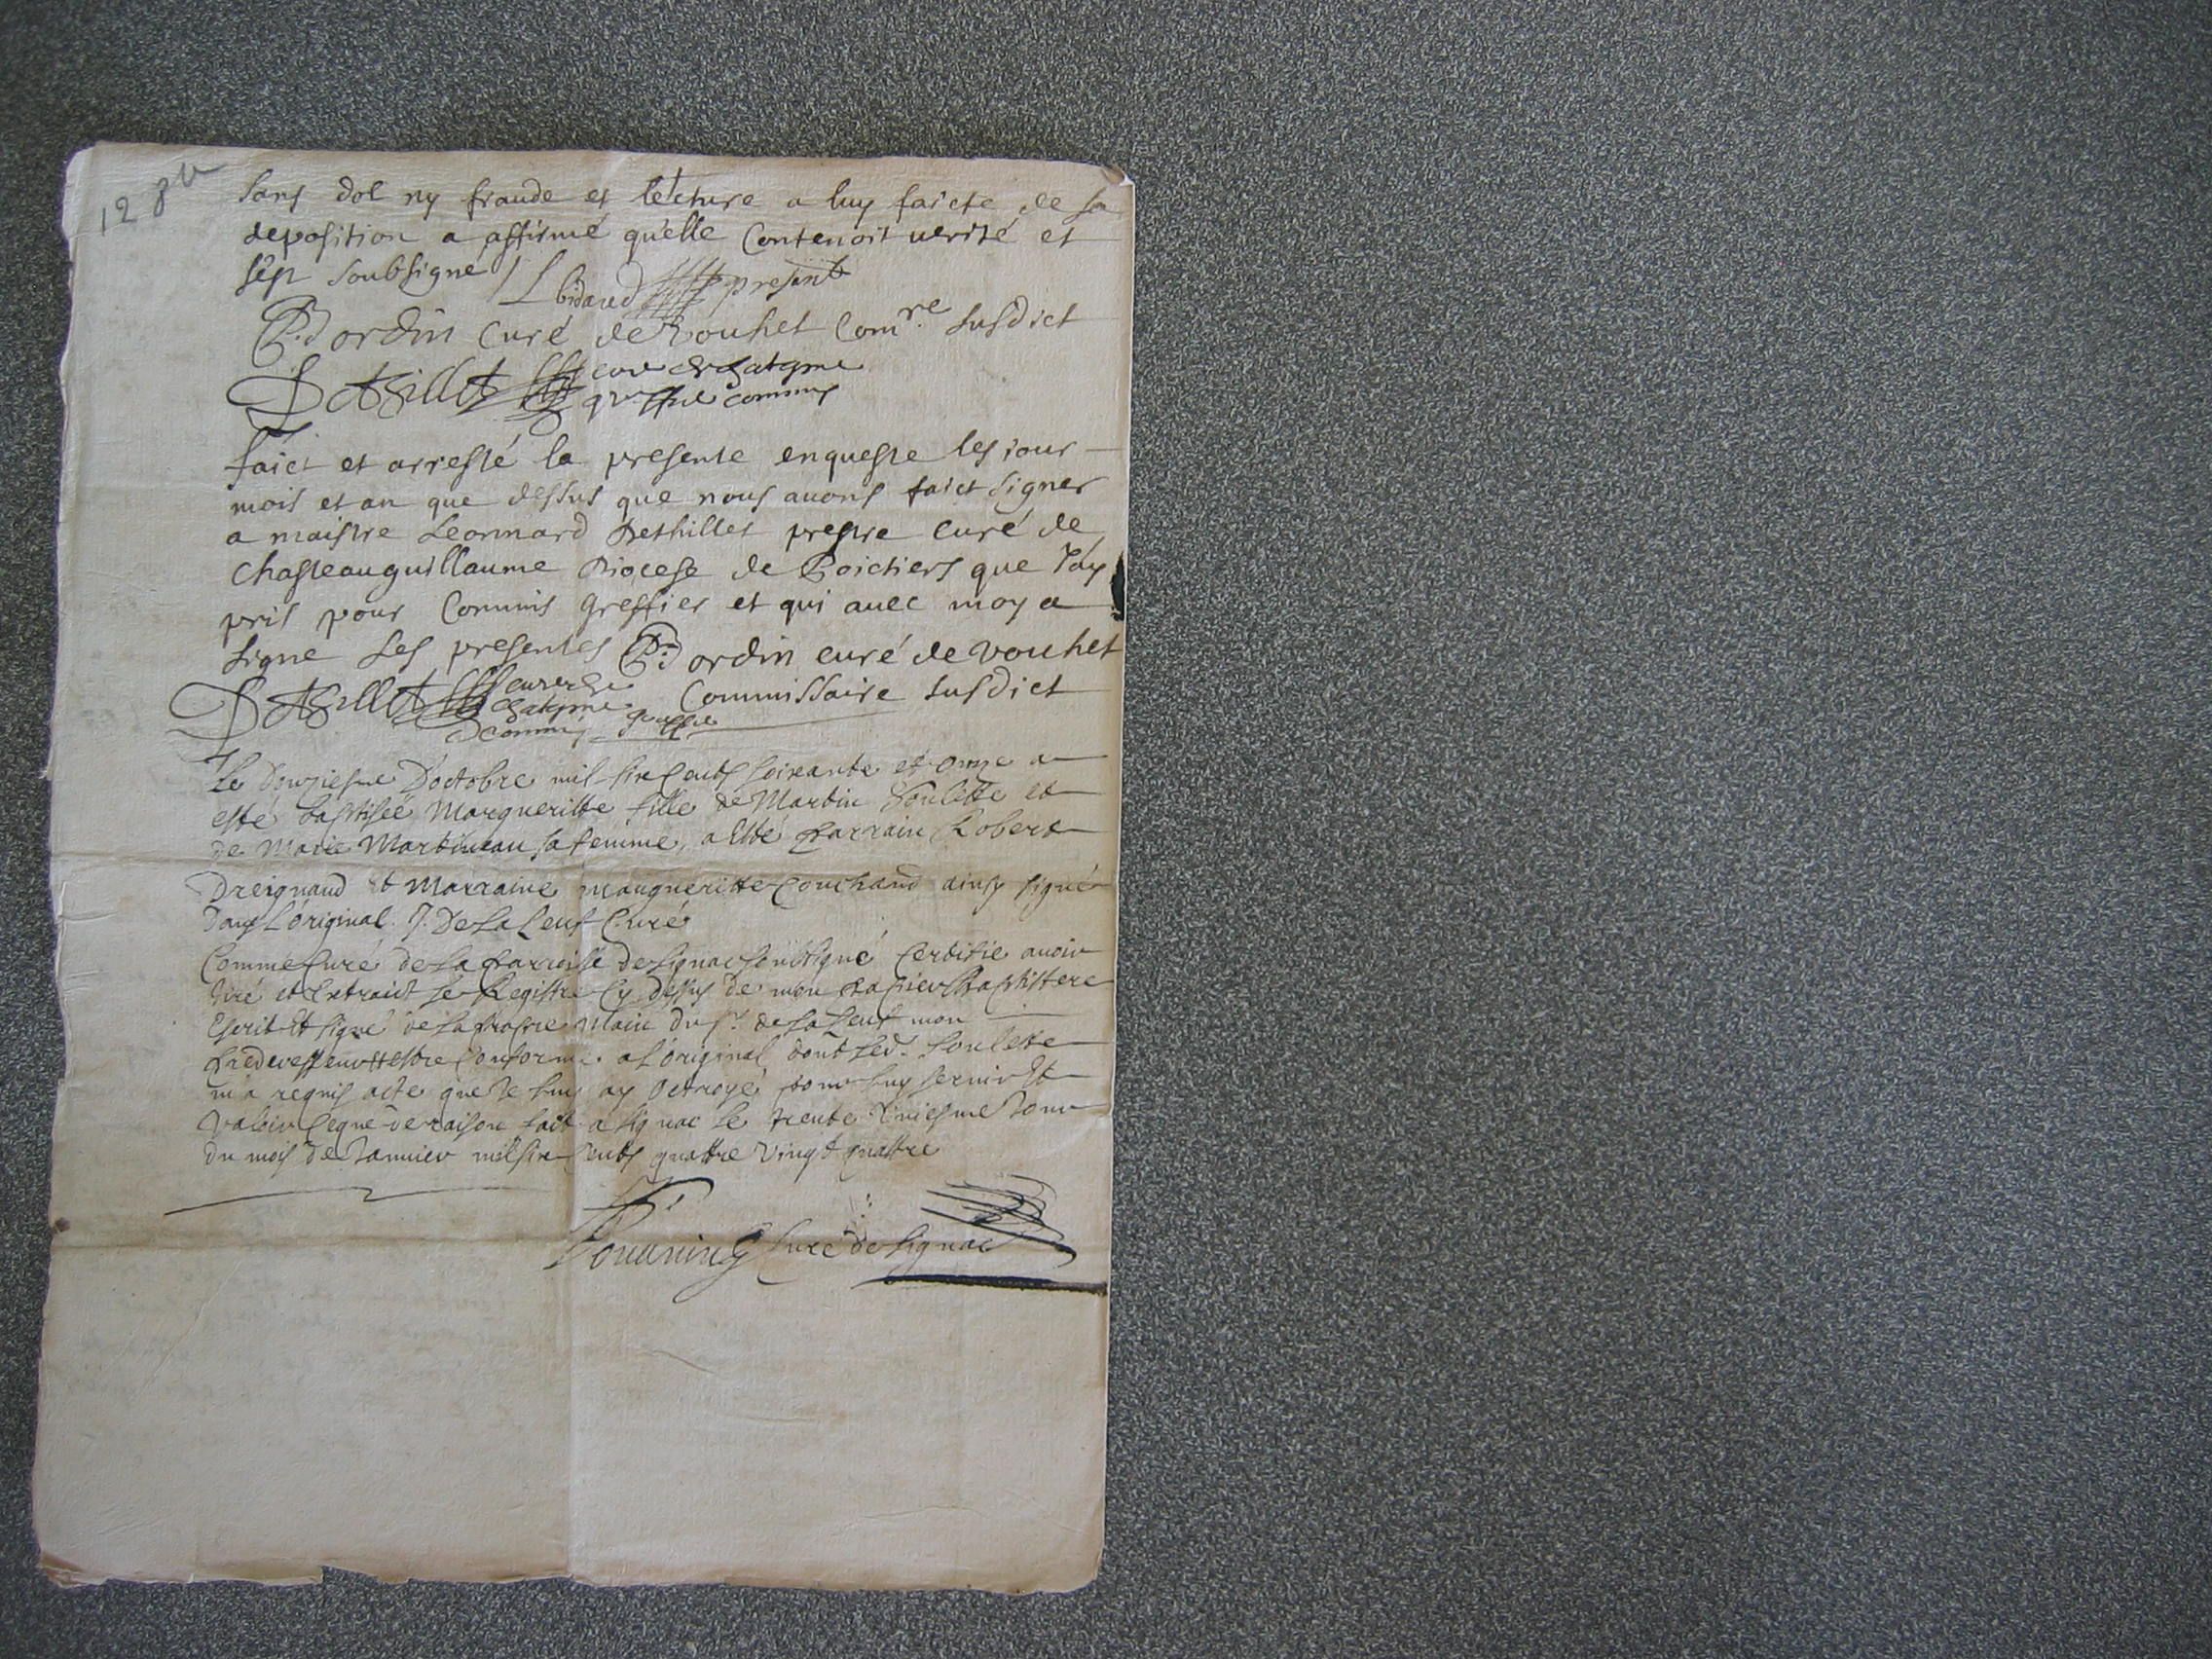 128
sans dol ny fraude et lecture a luy faicte de sa
deposition a affirmé qu'elle Contenoit verité et
s'est soubsigné
L bidaud present
P. Dordin Curé de vouhet Com.re susdict
Dethillet curé de chatgme
greffie commis
faict et arresté la presente enqueste les jour
mois et an que dessus que nous avons faict signer
a maistre Leonnard Dethillet prestre curé de
chasteauguillaume Diocese de Poictiers que j'ay
pris pour Commis greffier et qui avec moy a
signe les presentes P. Dordin curé de vouhet
Commissaire susdict
Dethillet curé de
chatgme
commis greffie
Le Douziesme D'octobre mil six cents soixante et onze a
esté baptisée Margueritte fille de Martin Soulette et
de Marie Martineau sa femme, a esté parrain Robert
Dreignaud et Marraine Margueritte Couchand ainsy signé
Dans L'original J. De La Leuf Curé
Comme Curé de La Parroisse de Lignac soubsigné Certifie avoir
tiré et Extraict le Registre Cy dessus de mon Papier Baptistere
Escrit Et signé de La propre Main du sr. de La Leuf mon
Predecesseur Et estre Conforme a L'original dont Led. Soulette
m'a requis acte que Je luy ay Octroyé pour luy servir Et
valoir Ceque de raison fait a Lignac Le trente Uniesme Jour
du mois de Janvier mil six cents quattre vingt quattre
Curé de Lignac